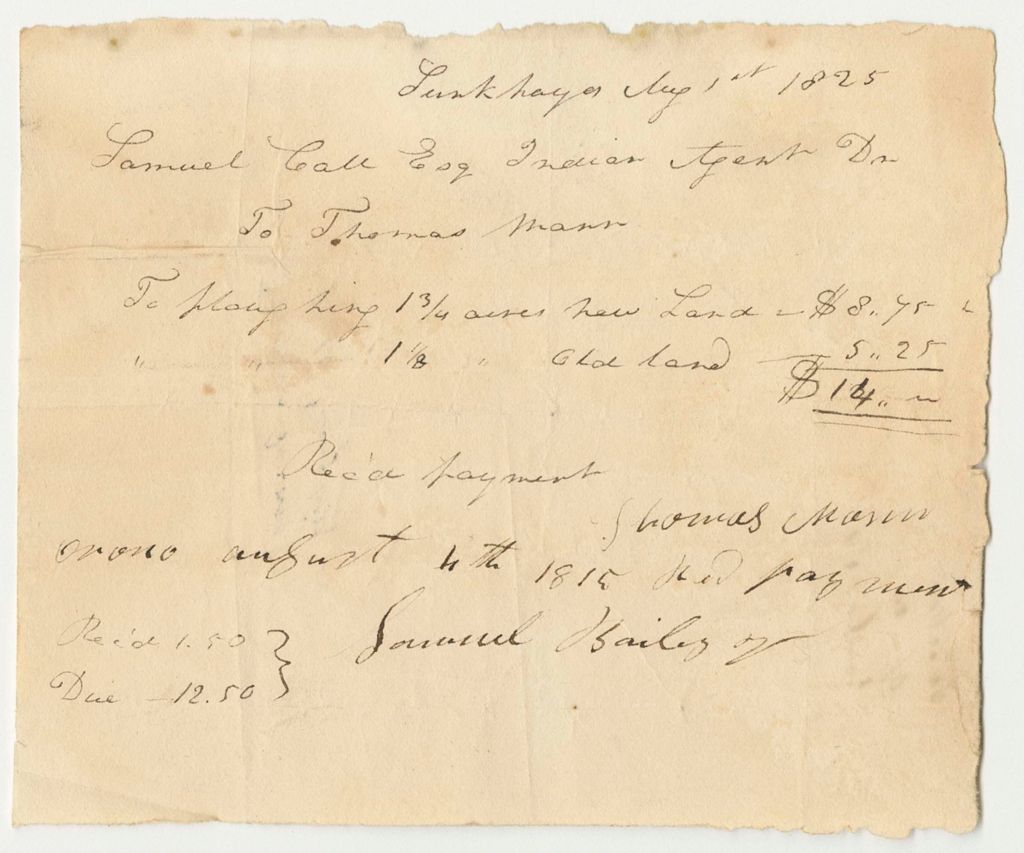 Sunkhayes Aug 1st 1825
Samuel Call Esq Indian Agent Dr
To Thomas Mann
To ploughing 1 3/4 acres new Land - $8.,75
" " 1 1/8 " Old land — 5.,25
$14.,
Rec'd payment
Thomas Mann
orono august 4th 1815 Red payment
Samuel Bailey
Rec'd 1.50
Due - 12.50